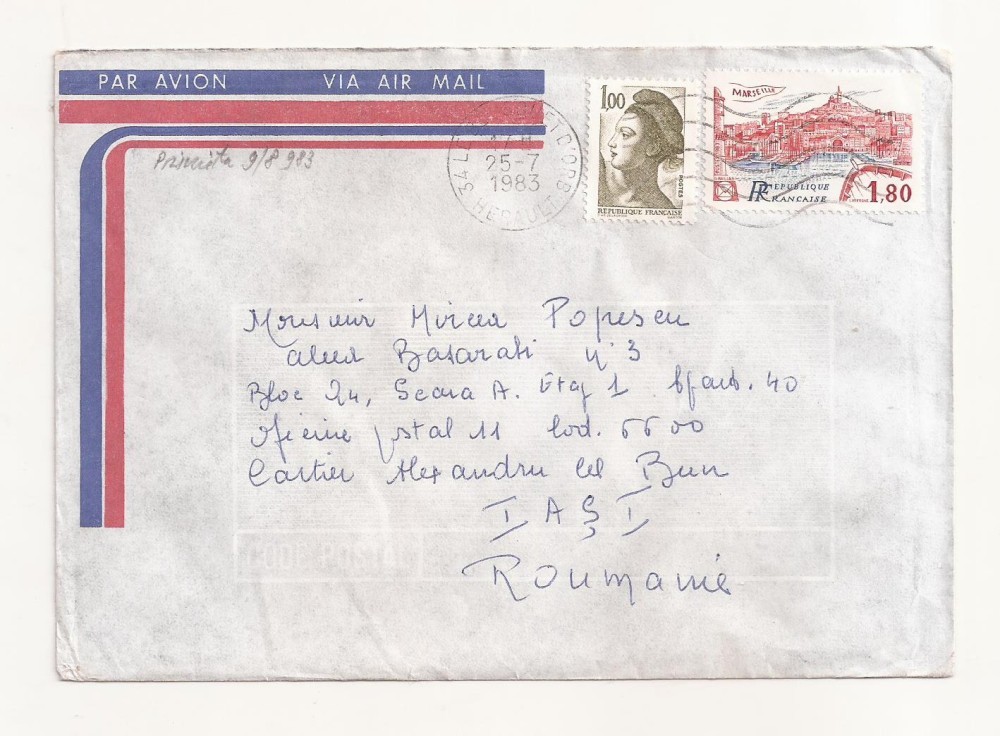 PAR AVION VIA AIR MAIL
Primita 9/8 983
34 LE
25-7
1983
HERAULT
1,00
POSTES
RÉPUBLIQUE FRANÇAISE
MARSEILLE
RF RÉPUBLIQUE FRANCAISE
1,80
Monsieur Mircea Popescu
aleea Basarabi n° 3
Bloc 24, Scara A. Etaj 1 Apart. 40
Oficiul postal 11 Cod. 6600
Cartier Alexandru cel Bun
IAŞI
Roumanie
CODE POSTAL